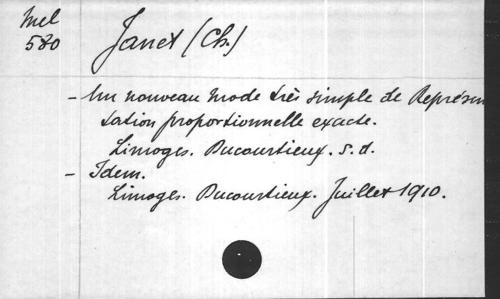 Mel
580
Janet (Ch.)
- Un nouveau mode très simple de Représen
tation proportionnelle exacte.
Limoges. Ducourtieux. s. d.
- Idem.
Limoges. Ducourtieux. Juillet 1910.